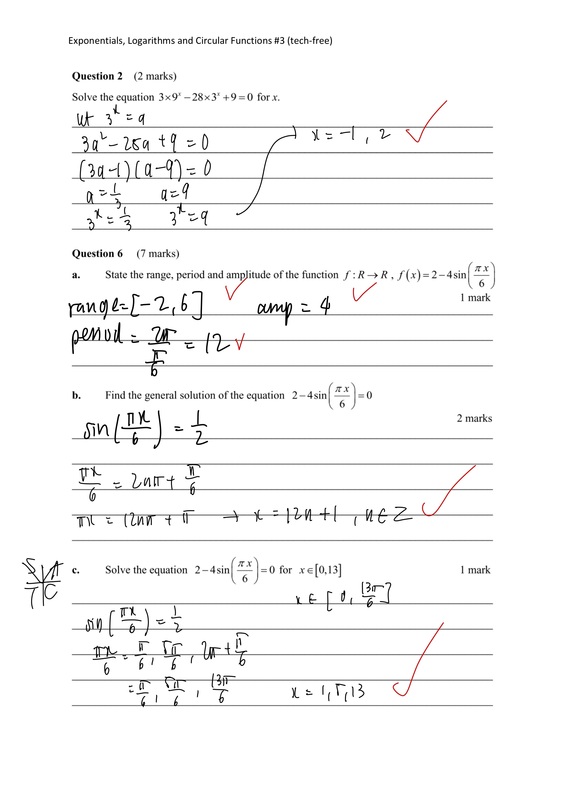 Exponentials, Logarithms and Circular Functions #3 (tech-free)
Question 2 (2 marks)
Solve the equation 3×9ˣ − 28×3ˣ + 9 = 0 for x.
let 3ˣ = a
3a² − 28a + 9 = 0
(3a−1)(a−9) = 0
a = 1/3 a = 9
3ˣ = 1/3 3ˣ = 9 → x = −1, 2
Question 6 (7 marks)
a. State the range, period and amplitude of the function f : R → R , f(x) = 2 − 4sin(πx/6)
1 mark
range = [−2, 6] amp = 4
period = 2π/(π/6) = 12
b. Find the general solution of the equation 2 − 4sin(πx/6) = 0
2 marks
sin(πx/6) = 1/2
πx/6 = 2nπ + π/6
πx = 12nπ + π → x = 12n + 1, n ∈ Z
S A
T C
c. Solve the equation 2 − 4sin(πx/6) = 0 for x ∈ [0,13] 1 mark
x ∈ [0, 13π/6]
sin(πx/6) = 1/2
πx/6 = π/6, 5π/6, 2π + π/6
= π/6, 5π/6, 13π/6 x = 1, 5, 13